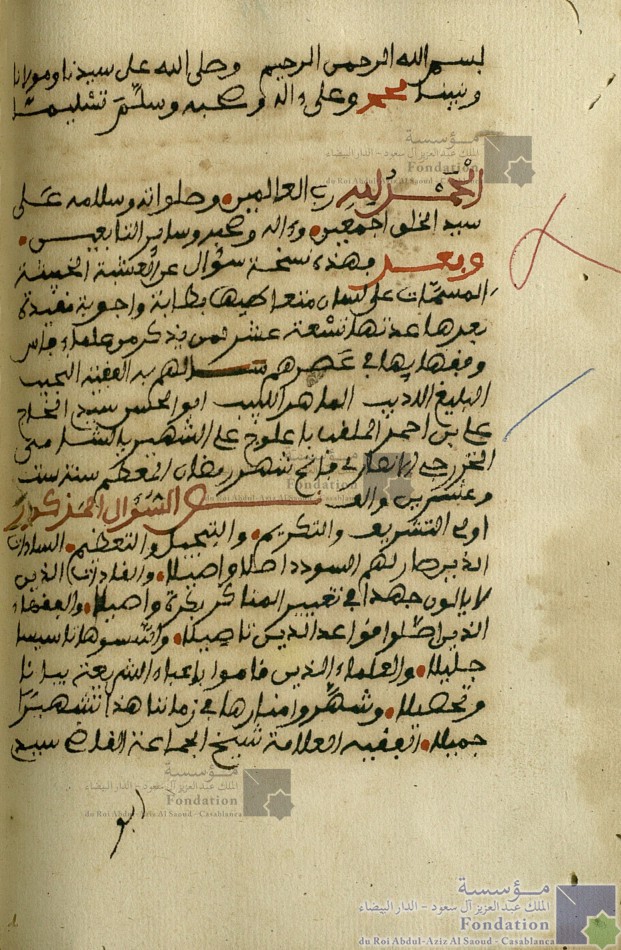 بسم الله الرحمن الرحيم وصلى الله على سيدنا ومولانا
ونبينا محمد وعلى ءاله وصحبه وسلم تسليما
الحمد لله رب العالمين وصلواته وسلامه على
سيد الخلق أجمعين وءاله وصحبه وساير التابعين
وبعد فهذه نسخة سؤال عن العشبة الخبيثة
المسمات على لسان متعاطيها بطابة واجوبة مفيدة
بعدها عدتها تسعة عشر ممن يذكر من علماء فاس
وفقهايها في عصرهم سالهم به الفقيه النجيب
البليغ الاديب الماهر اللبيب ابو الحسن سيدي الحاج
علي بن احمد الملقب با علوج على الشهير بالشامي
الخزرجي في فاتح شهر رمضان المعظم سنة ست
وعشرين والف نص السؤال المذكور
اولي التشريف والتكريم والتبجيل والتعظيم السادات
الذين صار لهم السودد اصلا واصيلا والقادات الذين
لا يالون جهدا في تغيير المناكر بكرة واصيلا والفقهاء
الذين اصلوا قواعد الدين تاصيلا واسسوها تاسيسا
جليلا والعلماء الذين قاموا باعباء الشريعة بيانا
وتحصيلا وشهروا منارها في زماننا هذا تشهيرا
جميلا الفقيه العلامة شيخ الجماعة القاضي سيدي
ابو
مؤسسة
الملك عبد العزيز آل سعود - الدار البيضاء
Fondation
du Roi Abdul-Aziz Al Saoud - Casablanca